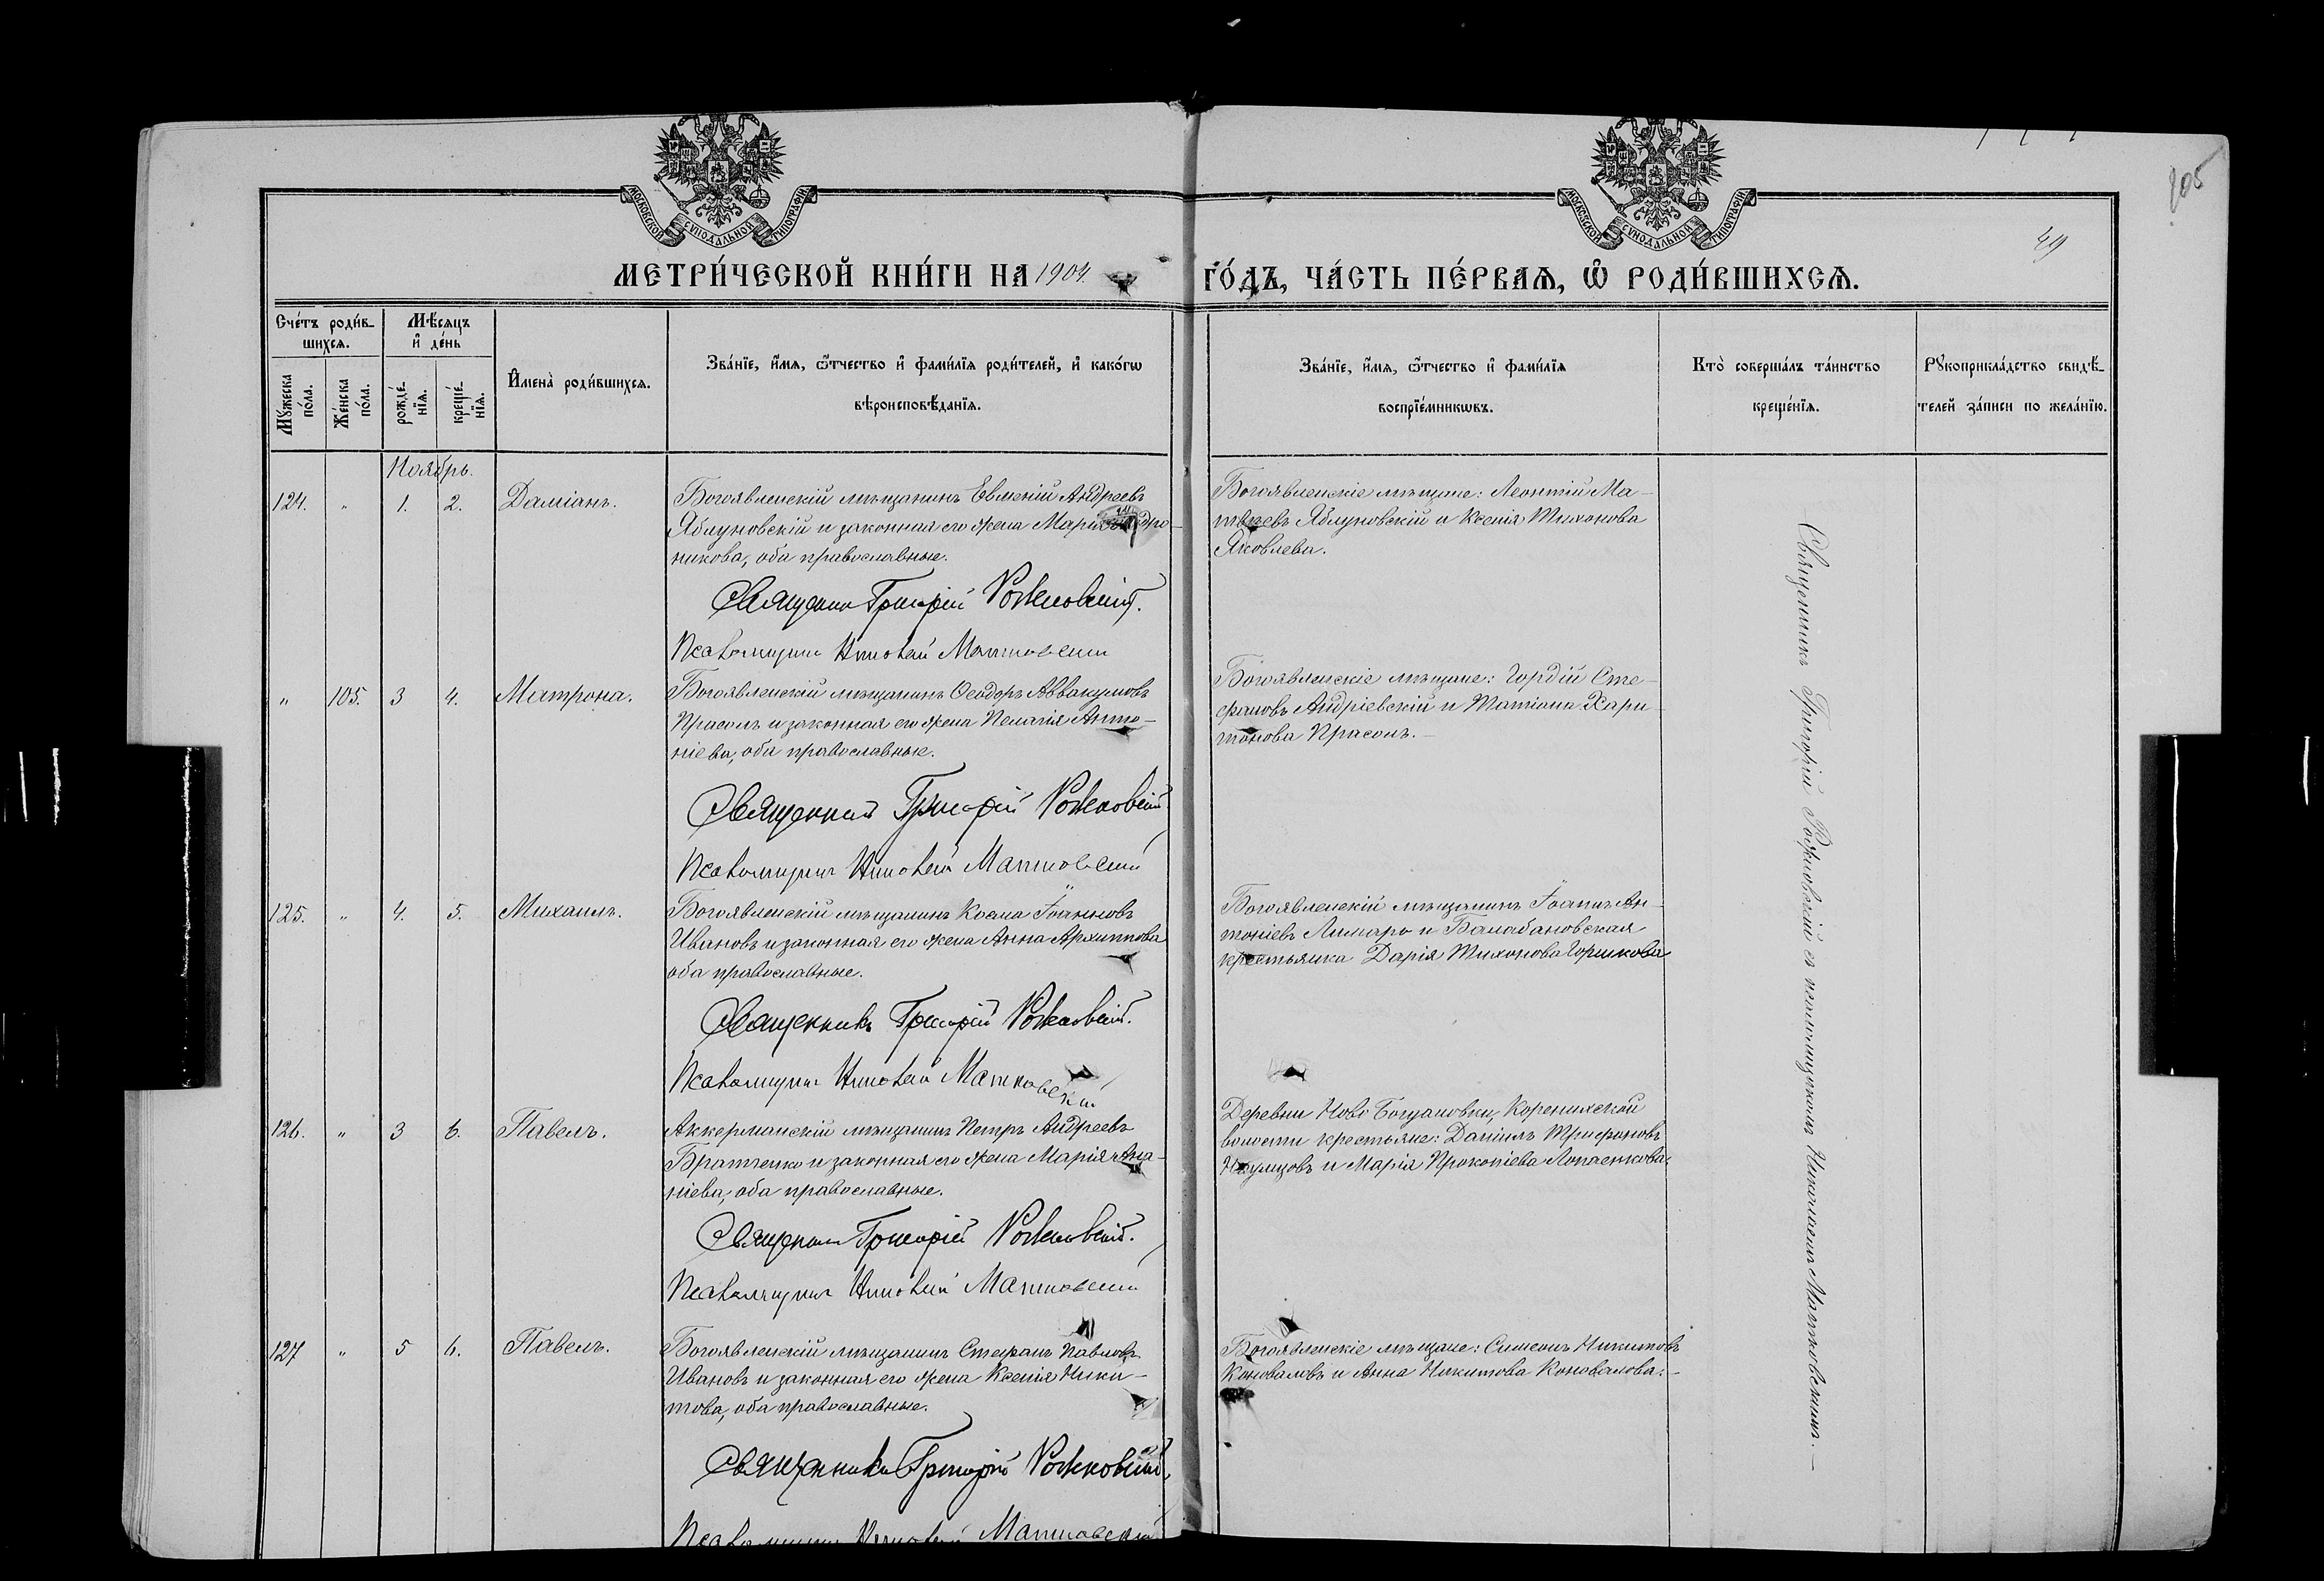 МОСКОВСКОЙ СѴНОДАЛЬНОЙ ТИПОГРАФІИ
МОСКОВСКОЙ СѴНОДАЛЬНОЙ ТИПОГРАФІИ
205
49
МЕТРИ́ЧЕСКОЙ КНИ́ГИ НА 1904.
ГО́ДЪ, ЧА́СТЬ ПЕ́РВАѦ, Ѡ҆ РОДИ́ВШИХСѦ.
Сче́тъ роди́в-
шихсѧ.
Мꙋжеска по́ла.
Же́нска по́ла.
Мѣ́сѧцъ
и҆ де́нь
рожде́-
нїѧ.
креще́-
нїѧ.
И҆мена̀ роди́вшихсѧ.
Зва́нїе, и҆́мѧ, ѻ҆́тчество и҆ фами́лїѧ роди́телей, и҆ како́гѡ
вѣроисповѣ́данїѧ.
Зва́нїе, и҆́мѧ, ѻ҆́тчество и҆ фами́лїѧ
воспрїе́мникѡвъ.
Кто̀ соверша́лъ та́инство
креще́нїѧ.
Рꙋкоприкла́дство свидѣ́-
телей за́писи по жела́нїю.
Ноябрь.
124. " 1. 2. Даміанъ.
Богоявленскій мѣщанинъ Евменій Андреевъ
Яблуновскій и законная его жена Марія
никова, оба православные.
Священникъ Григорій Рожковскій.
Псаломщикъ Николай Матковскій
Богоявленскіе мѣщане: Леонтій Ма-
твѣевъ Яблуновскій и Ксенія Тихонова
Яковлева.
" 105. 3 4. Матрона.
Богоявленскій мѣщанинъ Ѳеодоръ Аввакумовъ
Прасолъ и законная его жена Пелагія Анто-
ніева, оба православные.
Священникъ Григорій Рожковскій
Псаломщикъ Николай Матковскій
Богоявленскіе мѣщане: Гордій Сте-
фановъ Андріевскій и Татіана Хари-
тонова Прасолъ.-
125. " 4. 5. Михаилъ.
Богоявленскій мѣщанинъ Косма Іоанновъ
Ивановъ и законная его жена Анна Архиппова
оба православные.
Священникъ Григорій Рожковскій.
Псаломщикъ Николай Матковскій
Богоявленскій мѣщанинъ Іоаннъ Ан-
тоніевъ Лимаръ и Балабановская
крестьянка Дарія Тихонова Горшкова
126. " 3 6. Павелъ.
Аккерманскій мѣщанинъ Петръ Андреевъ
Братченко и законная его жена Марія Ана-
ніева, оба православные.
Священникъ Григорій Рожковскій.
Псаломщикъ Николай Матковскій
Деревни Ново Богдановки, Коренихской
волости крестьяне: Даніилъ Трифоновъ
и Марія Прокопіева Лопаенкова.
127 " 5 6. Павелъ.
Богоявленскій мѣщанинъ Стефанъ Павловъ
Ивановъ и законная его жена Ксенія Ники-
това, оба православные.
Священникъ Григорій Рожковскій
Псаломщикъ Николай Матковскій
Богоявленскіе мѣщане: Симеонъ Никитовъ
Коноваловъ и Анна Никитова Коновалова.-
Священникъ Григорій Рожковскій съ псаломщикомъ Николаемъ Матковскимъ.-